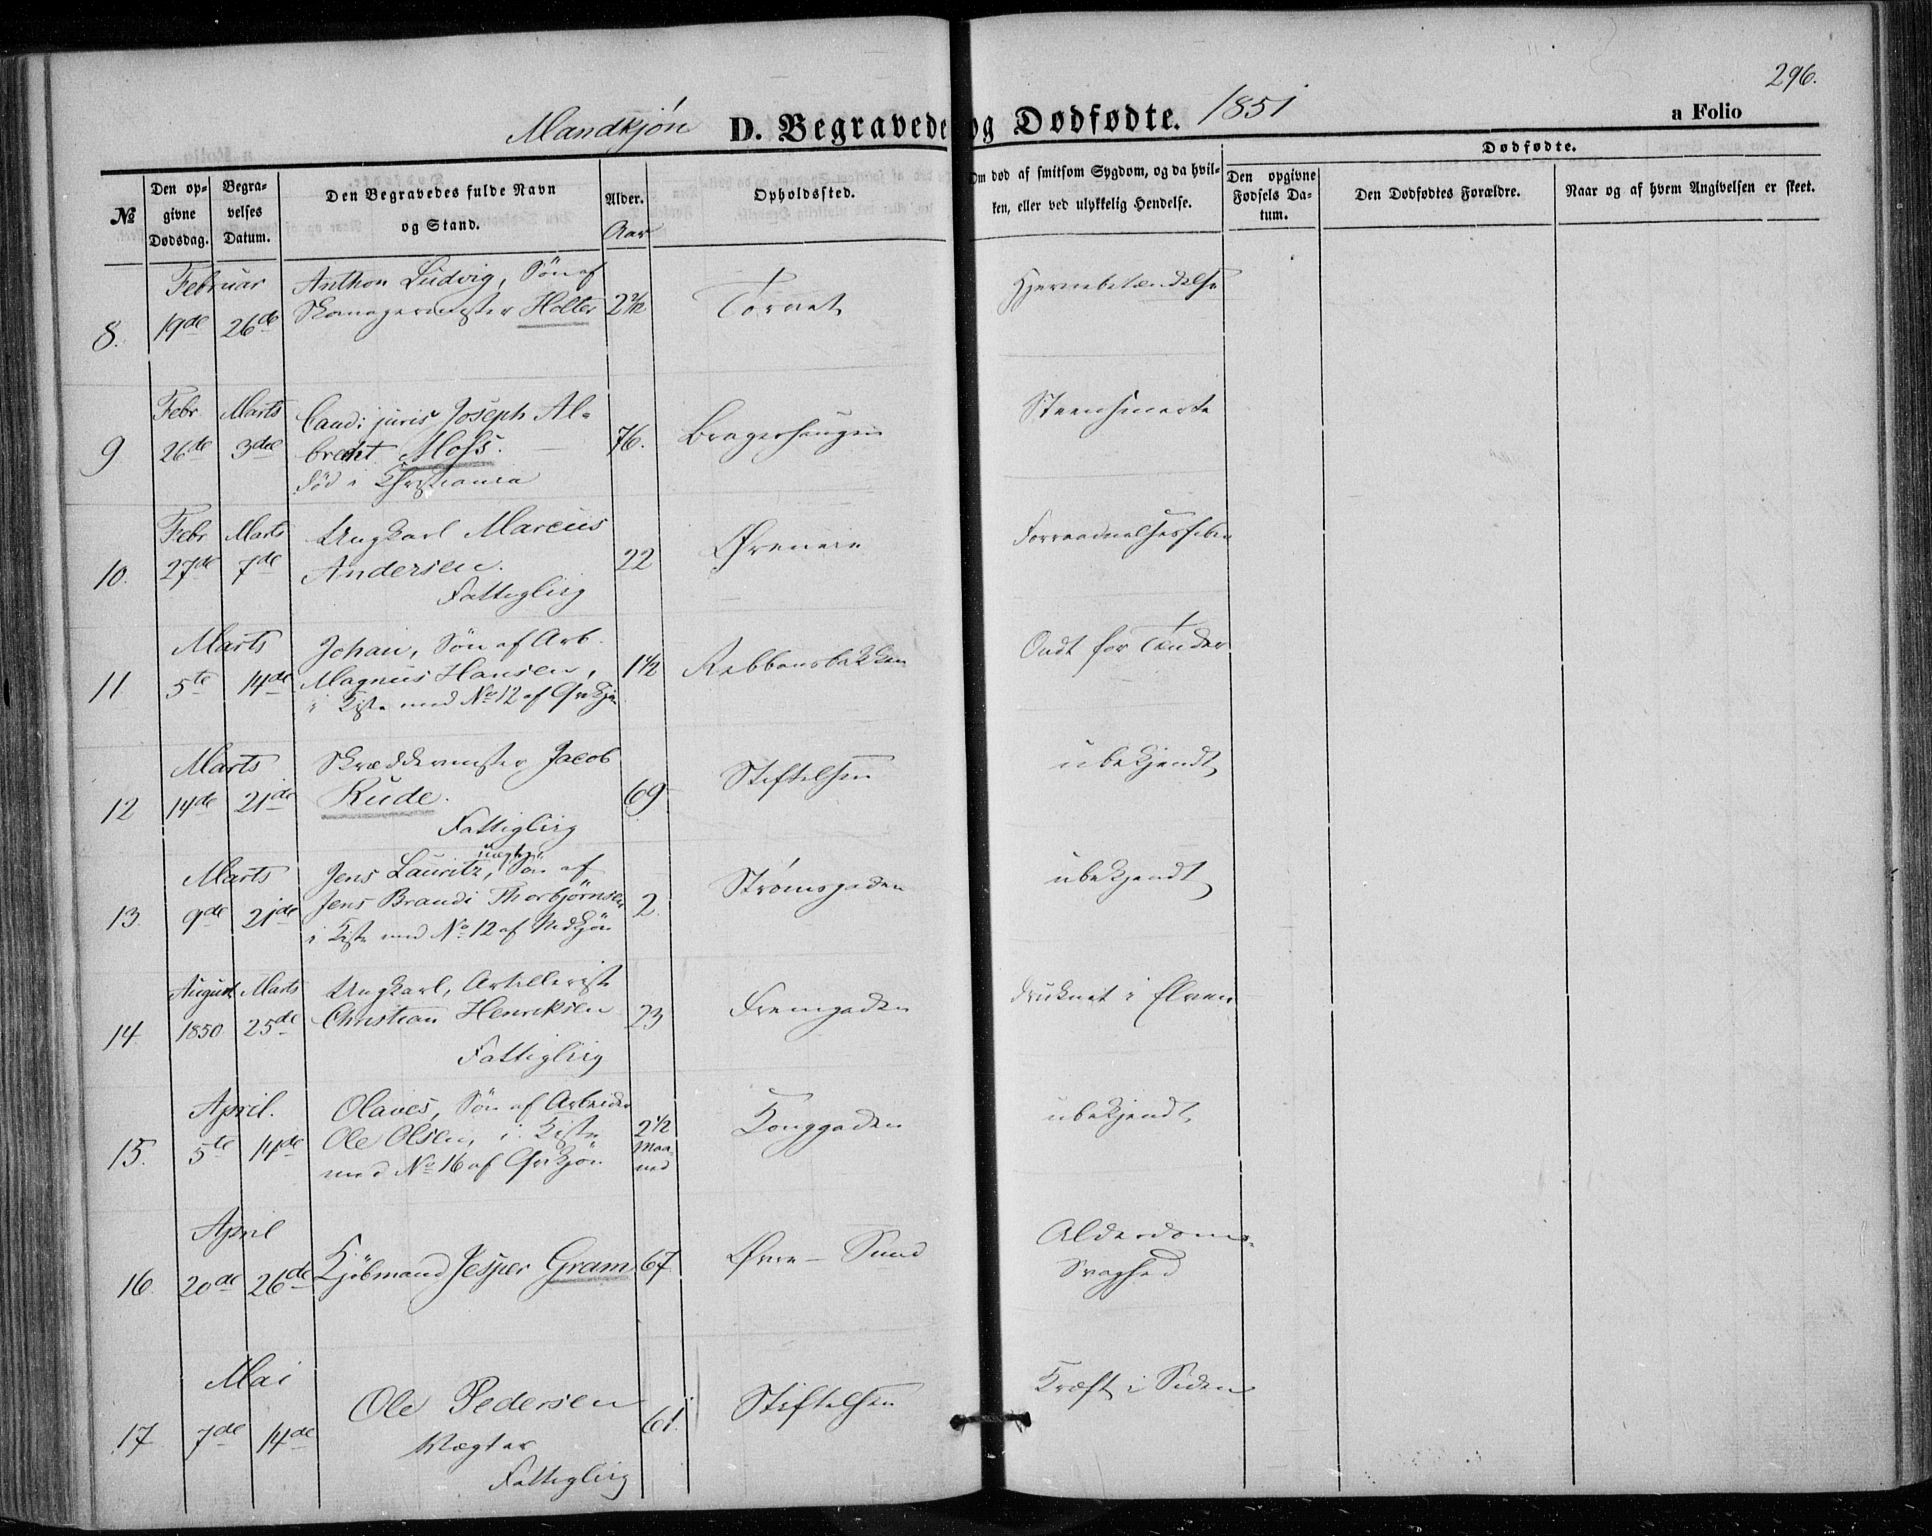 296.
Mandkjøn D. Begravede og Dødfødte. 1851 a Folio
№
Den opgivne Dødsdag.
Begravelses Datum.
Den Begravedes fulde Navn og Stand.
Alder.
Aar
Opholdssted.
Om død af smitsom Sygdom, og da hvilken, eller ved ulykkelig Hendelse.
Dødfødte.
Den opgivne Fødsels Datum.
Den Dødfødtes Forældre.
Naar og af hvem Angivelsen er skeet.
Februar Anthon Ludvig, Søn af Hjernebetændelse
8. 19de 26de Skomagermester Holter 2 Tornet
Febr Marts Cand: juris Joseph Al- Steensmerte
9 26de 3die brecht Moss. 76. Bragerhaugen
død i Christiania
Febr Marts Ungkarl Marcus Forraadnelsesfeber
10. 27de 7de Andersen. 22 Ørenene
Fattiglig
Marts Johan, Søn af Arb. Ondt for Tænder
11 5te 14de Magnus Hansen, 1½ Rebbansbakken
i Kiste med No 12 af Qvkjøn
Marts Skræddermester Jacob ubekjendt
12 14de 21de Rude. 69 Stiftelsen
Fattiglig
Marts Jens Lauritz, uægte Søn af ubekjendt
13. 9de 21de Jens Brandi Thorbjørnsen 2. Strømsgaden
i Kiste med No 12 af Mdkjøn
August Marts Ungkarl, Artillerist druknet i Elven
14. 1850 25de Christian Henriksen 23 Fremgaden
Fattiglig
April. Olaves, Søn af Arbeider ubekjendt
15. 5te 14de Ole Olsen, i Kiste 2½ Maaned Konggaden
med No 16 af Qvkjøn
April Alderdoms-
16. 20de 26de Kjøbmand Jesper Gram 67 Øvre-Sund Svaghed
Mai Kræft i Siden
17 7de 14de Ole Pedersen 61. Stiftelsen
Vægter
Fattiglig